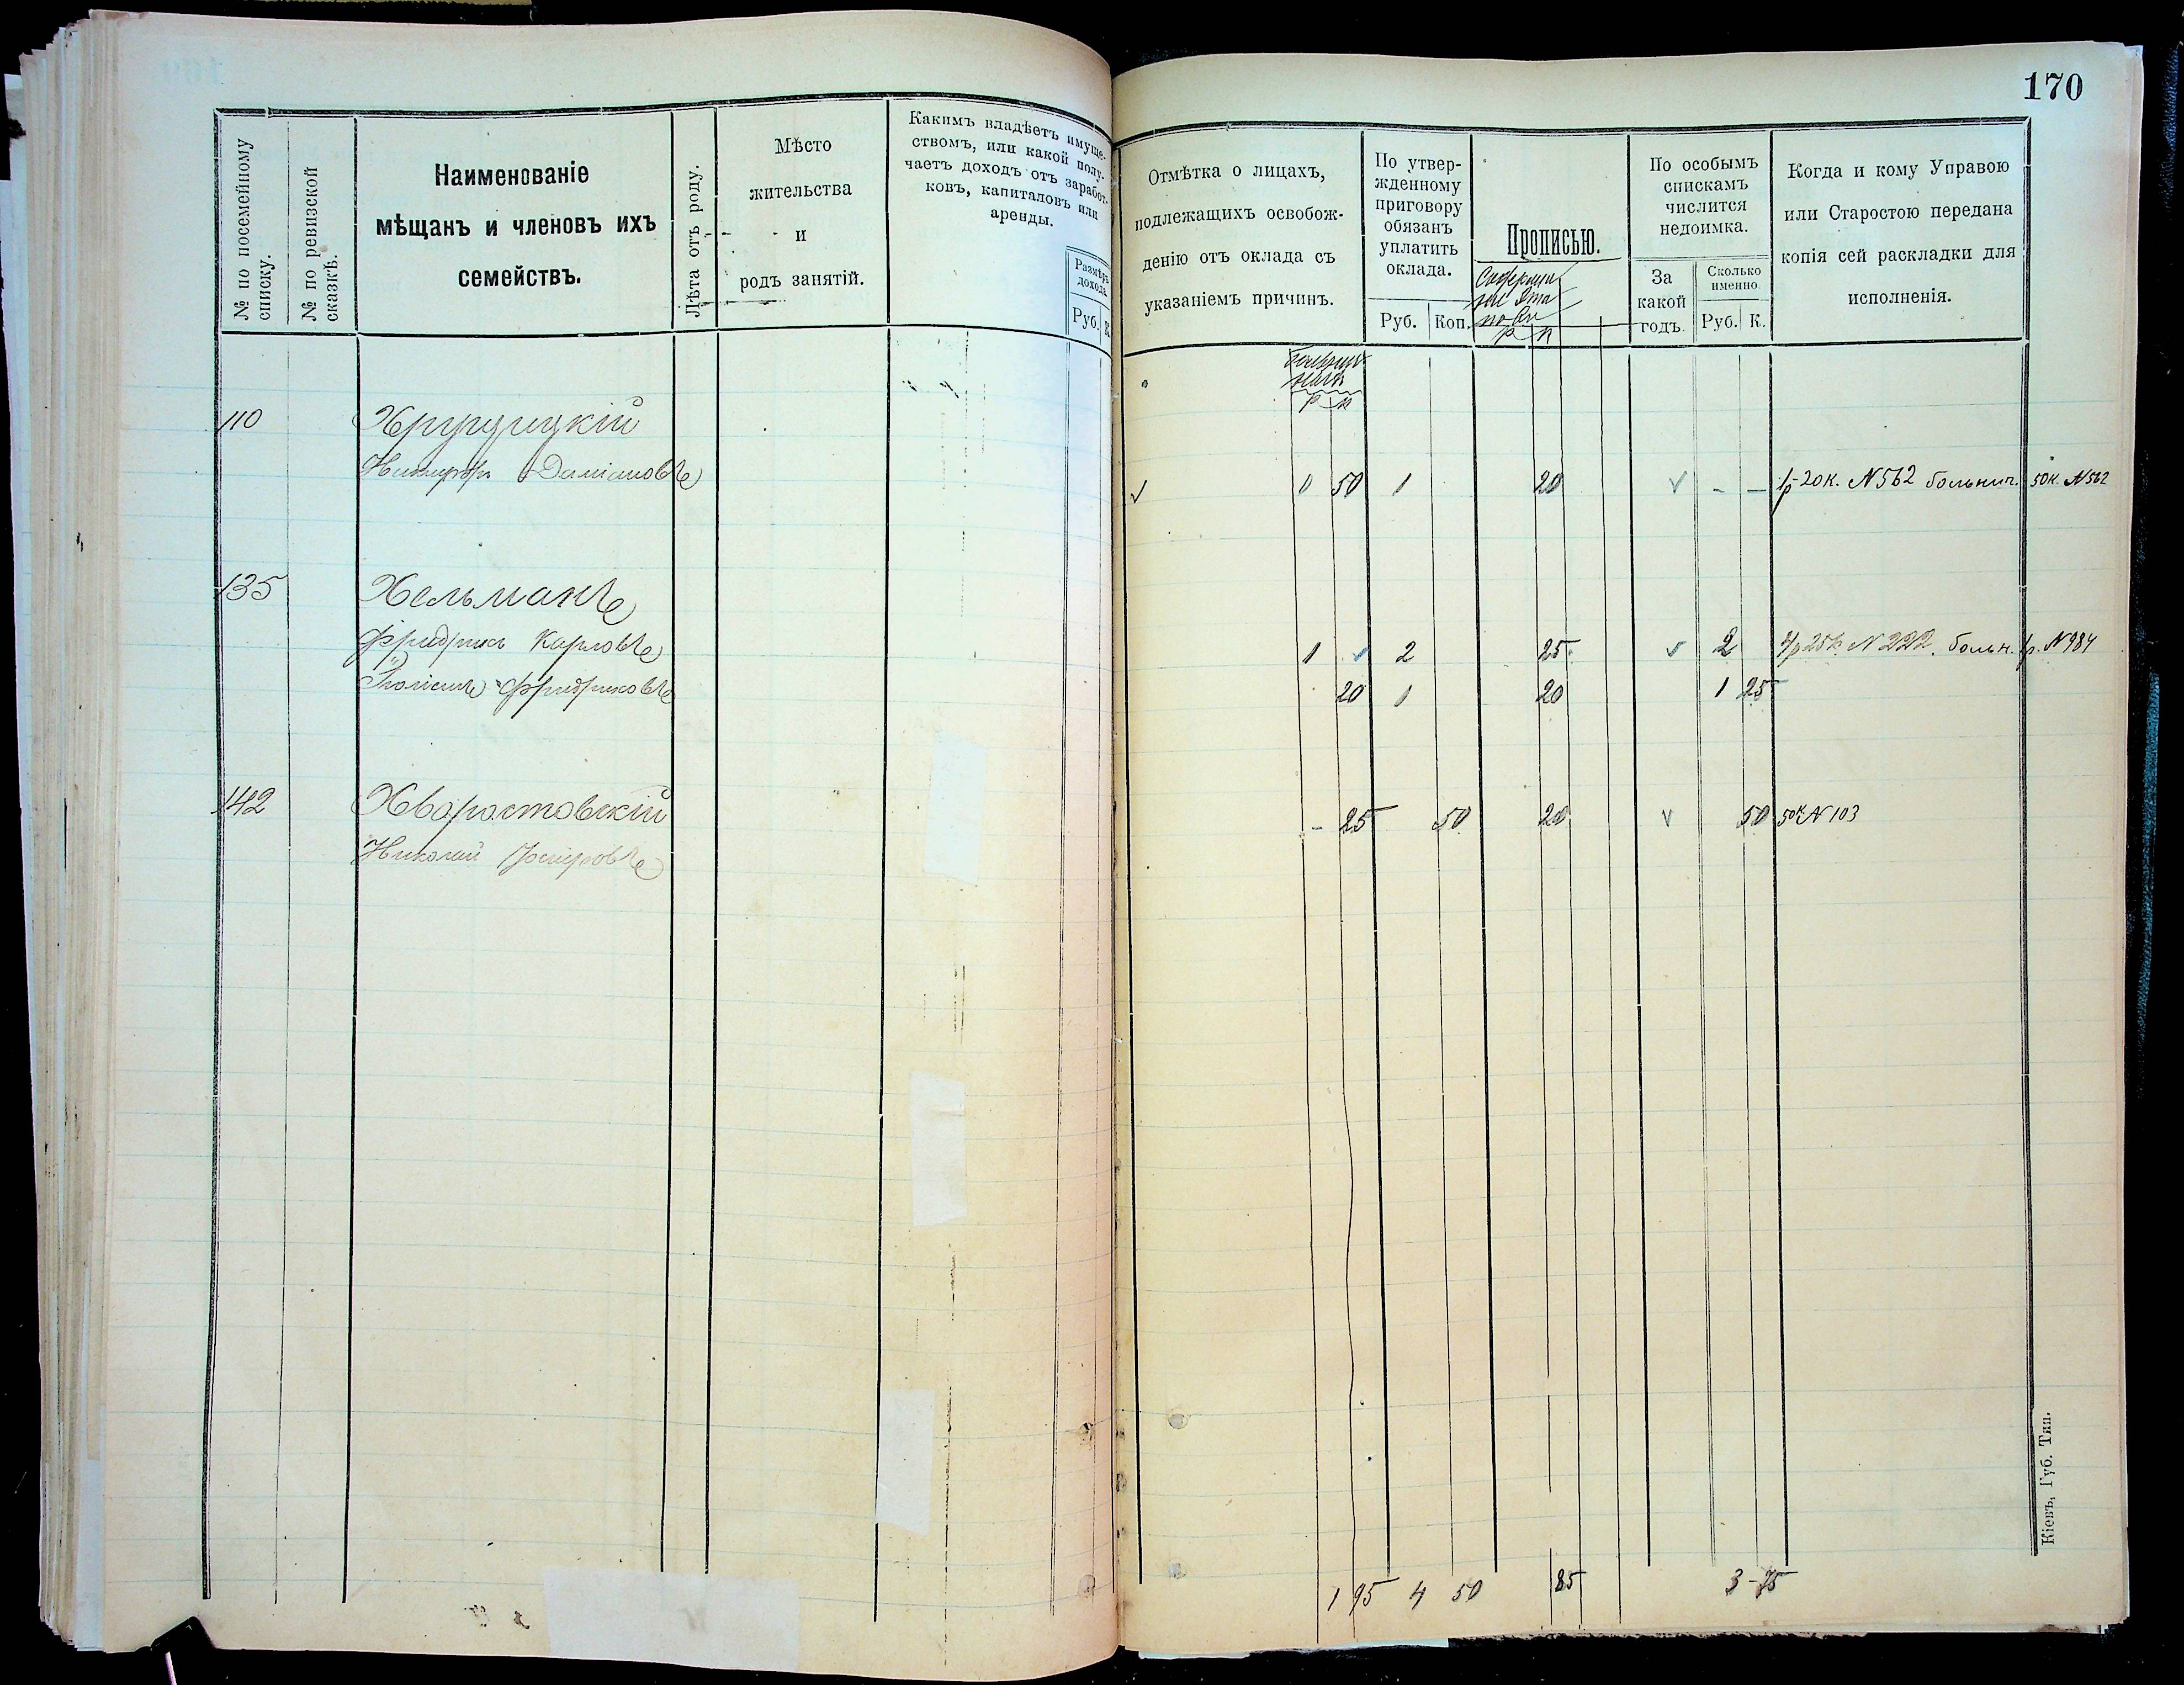 170
№ по посемейному
списку.
№ по ревизской
сказкѣ.
Наименованіе
мѣщанъ и членовъ ихъ
семействъ.
Лѣта отъ роду.
Мѣсто
жительства
и
родъ занятій.
Какимъ владѣетъ имуще-
ствомъ, или какой полу-
чаетъ доходъ отъ заработ-
ковъ, капиталовъ или
аренды.
Размѣръ
дохода
Руб. К
Отмѣтка о лицахъ,
подлежащихъ освобож-
денію отъ оклада съ
указаніемъ причинъ.
По утвер-
жденному
приговору
обязанъ
уплатить
оклада.
Руб. Коп.
Прописью.
р к
По особымъ
спискамъ
числится
недоимка.
За
какой
годъ.
Сколько
именно
Руб. К.
Когда и кому Управою
или Старостою передана
копія сей раскладки для
исполненія.
р к
110
Никифоръ Даміановъ
50 1 20 - - 1р 20к. N 562 больнич. 50к. N 562
135 Хельманъ
Фридрихъ Карловъ 1 2 25 2 2р 25к. N 222. больн. 1р. N 984
Фридриховъ 20 1 20 1 25
142 Хворостовскій - 25 50 20 50 50к N 103
Николай
1 95 4 50 85 3-75
Кіевъ, Губ. Тип.